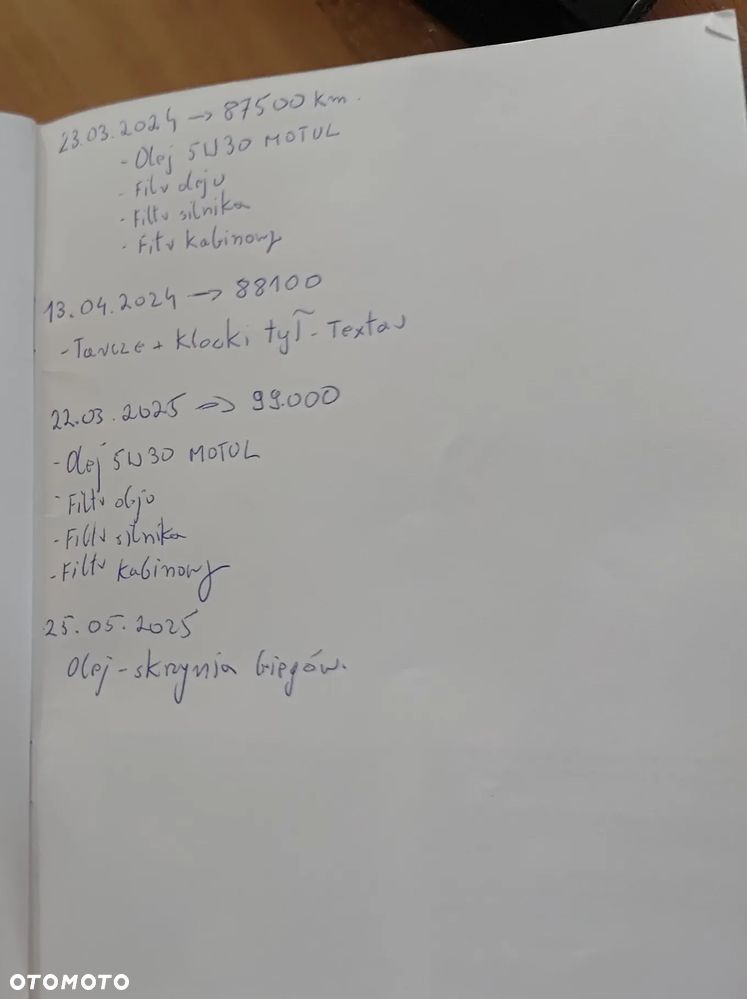 23.03.2024 → 87500 km.
- Olej 5W30 MOTUL
- Filtr oleju
- Filtr silnika
- Fitr kabinowy
13.04.2024 → 88100
- Tarcze + klocki tył - Textar
22.03.2025 => 99.000
- Olej 5W30 MOTUL
- Filtr oleju
- Filtr silnika
- Filtr kabinowy
25.05.2025
Olej - skrzynia biegów.
OTOMOTO